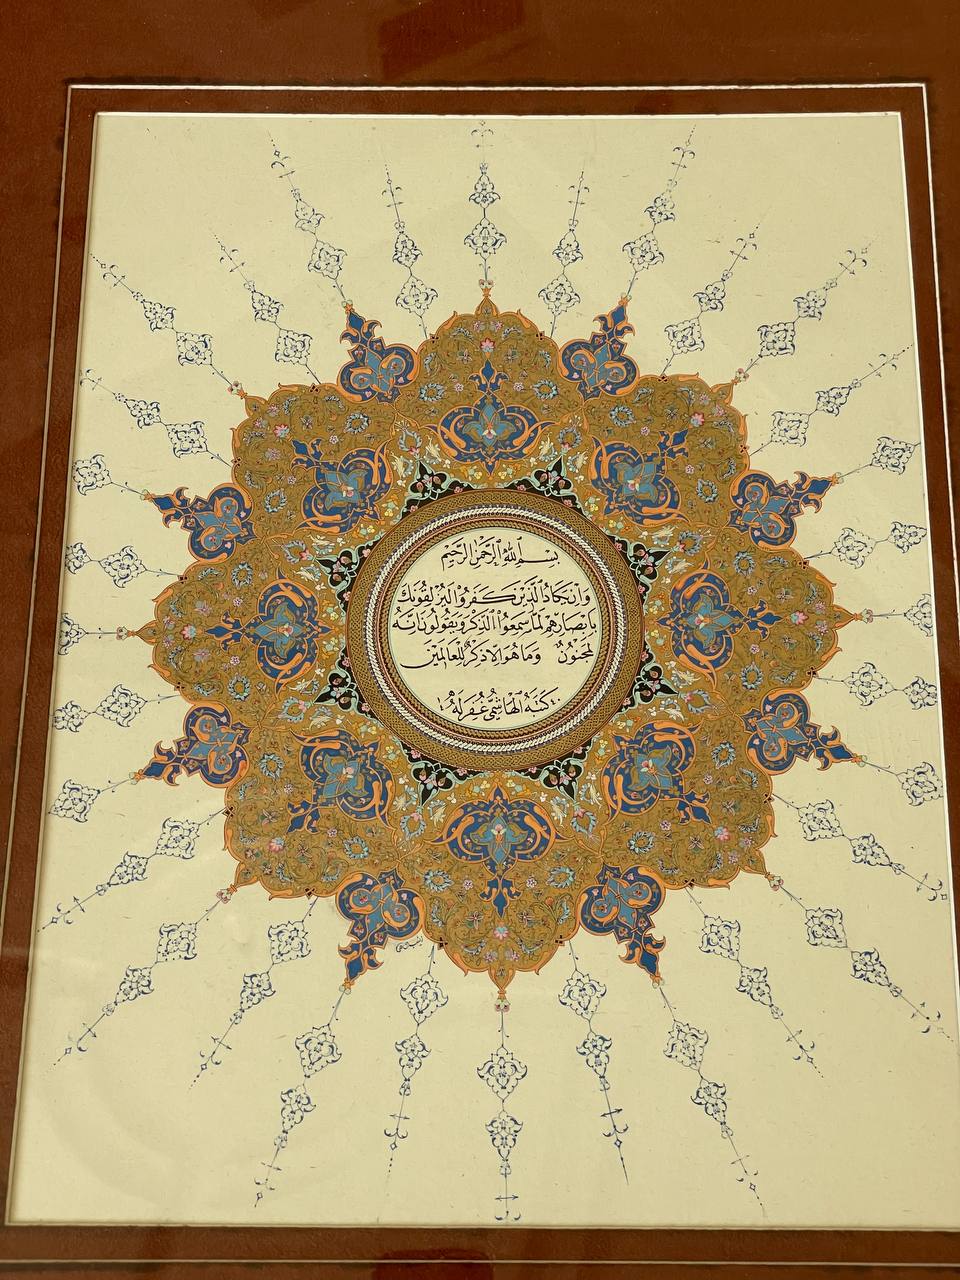 بسم الله الرحمن الرحيم
وَإِن يَكَادُ الَّذِينَ كَفَرُوا لَيُزْلِقُونَكَ
بِأَبْصَارِهِمْ لَمَّا سَمِعُوا الذِّكْرَ وَيَقُولُونَ إِنَّهُ
لَمَجْنُونٌ وَمَا هُوَ إِلَّا ذِكْرٌ لِلْعَالَمِينَ
كَتَبَهُ الهَاشِمِي غُفِرَ لَهُ